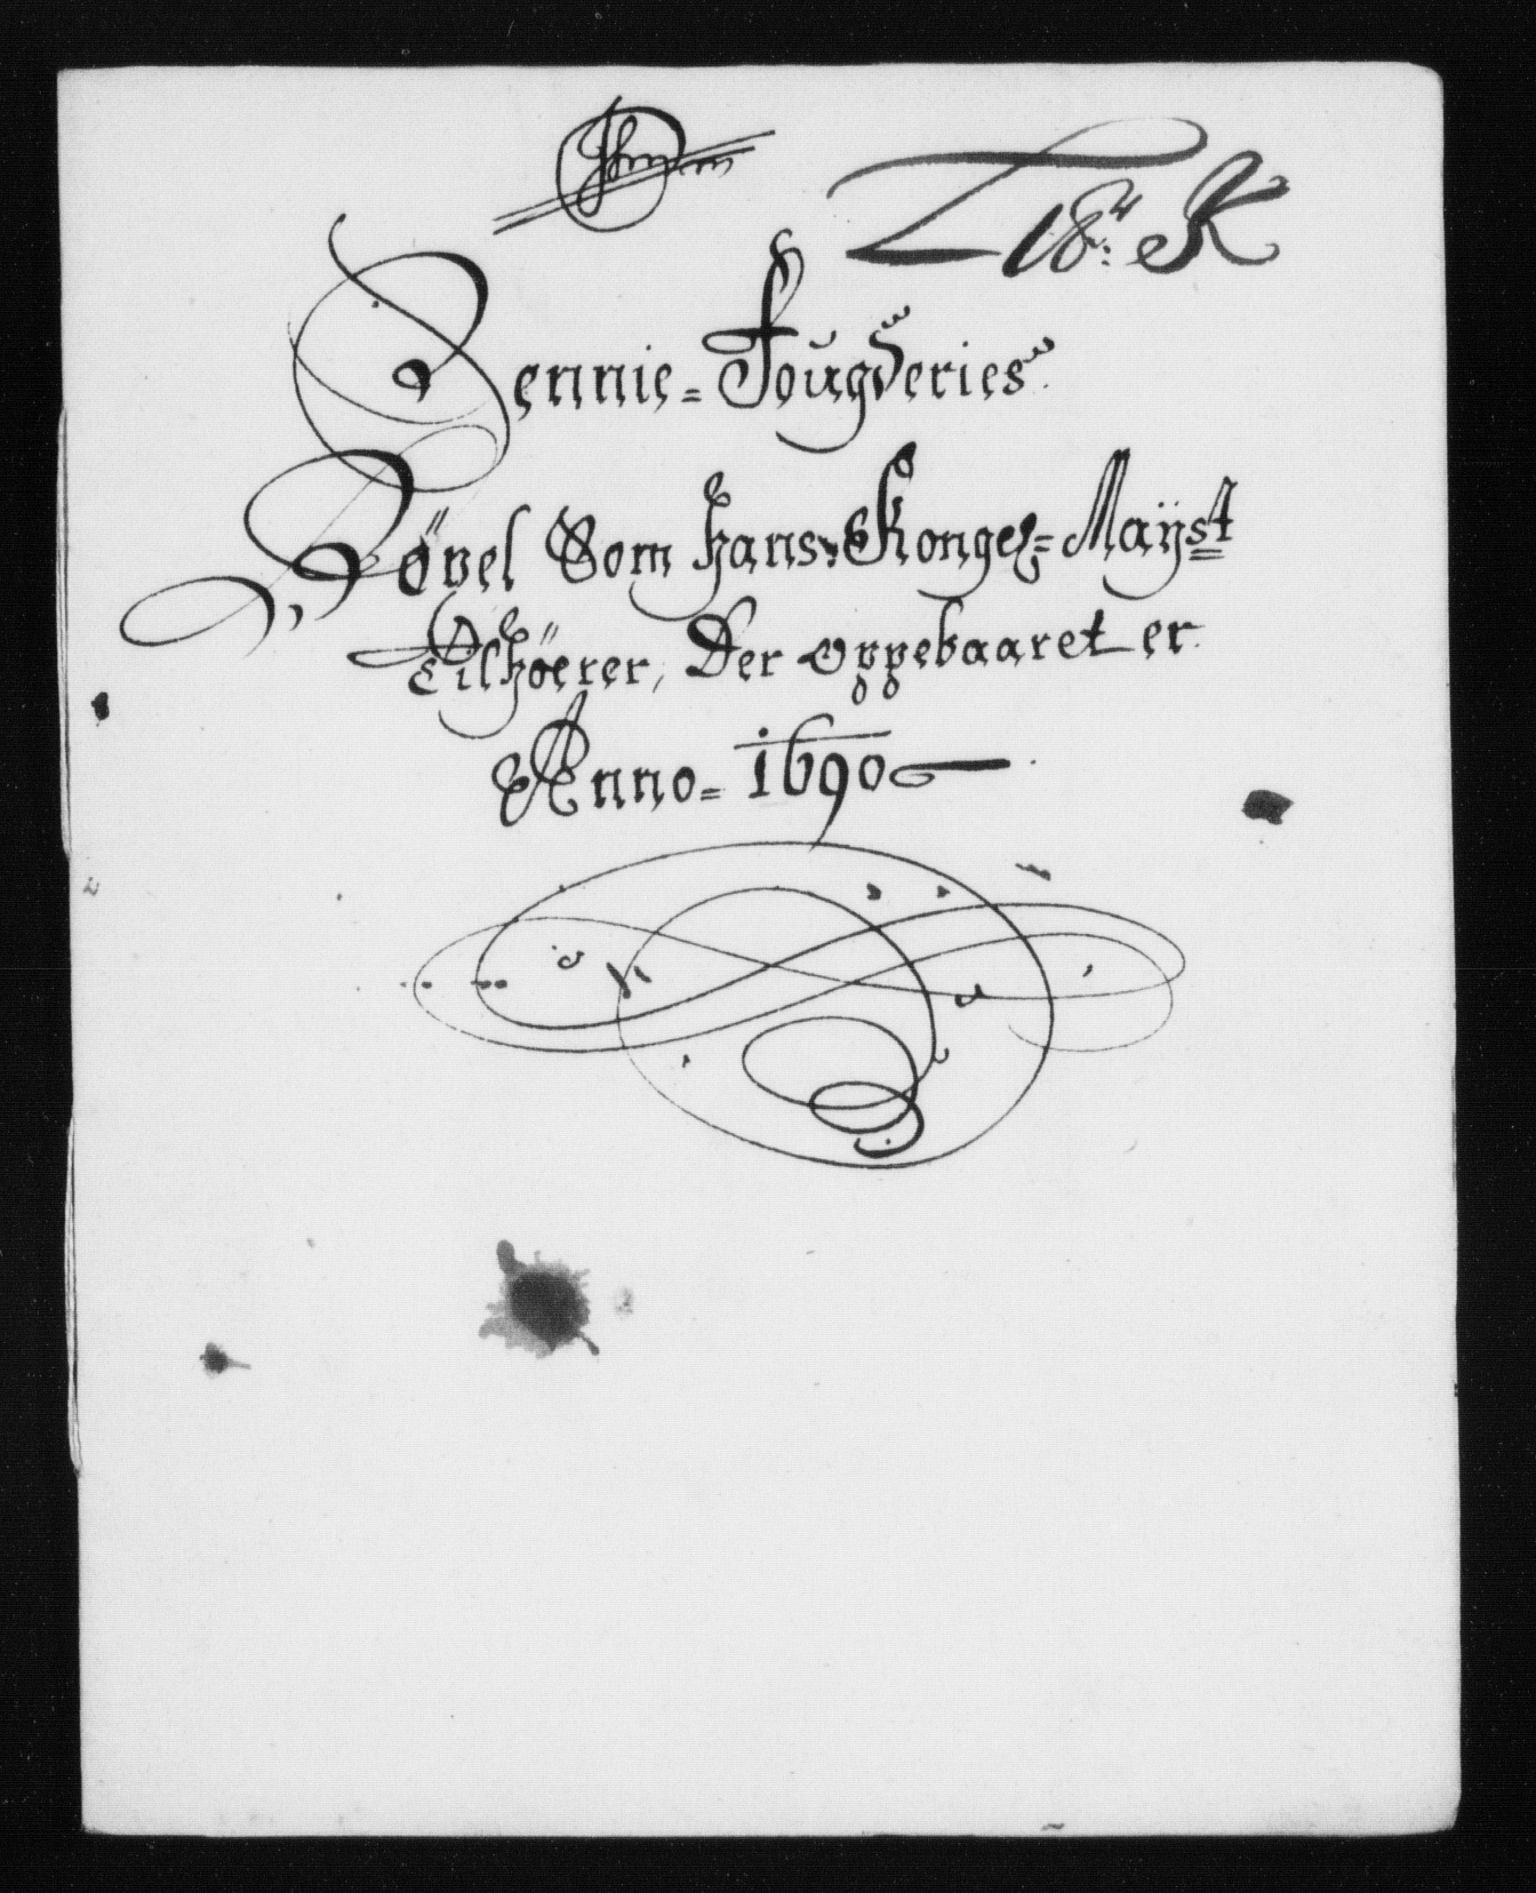 18. K
Sennie=Fougderies
Böxel Som hans Konge= Mayst
Tilhöerer, Der oppebaaret er
Anno= 1690